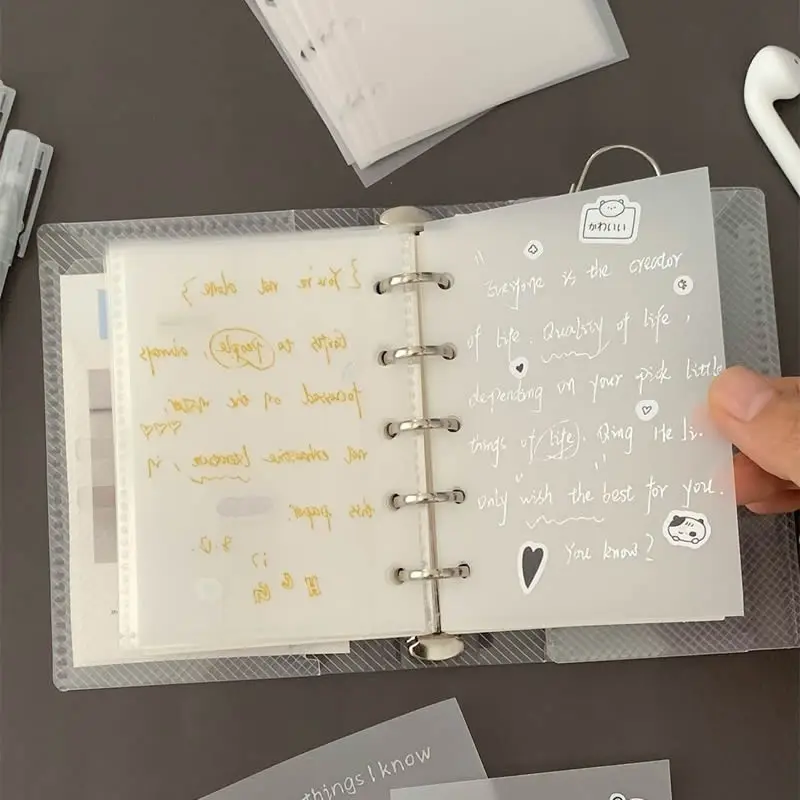 {You're not alone}
to people, always
focused on
not exhaustive
this paper.
かわいい
Everyone is the creator
of life. Quality of life,
depending on your pick little
things of life. Qing He Ji.
only wish the best for you.
You know?
things I know